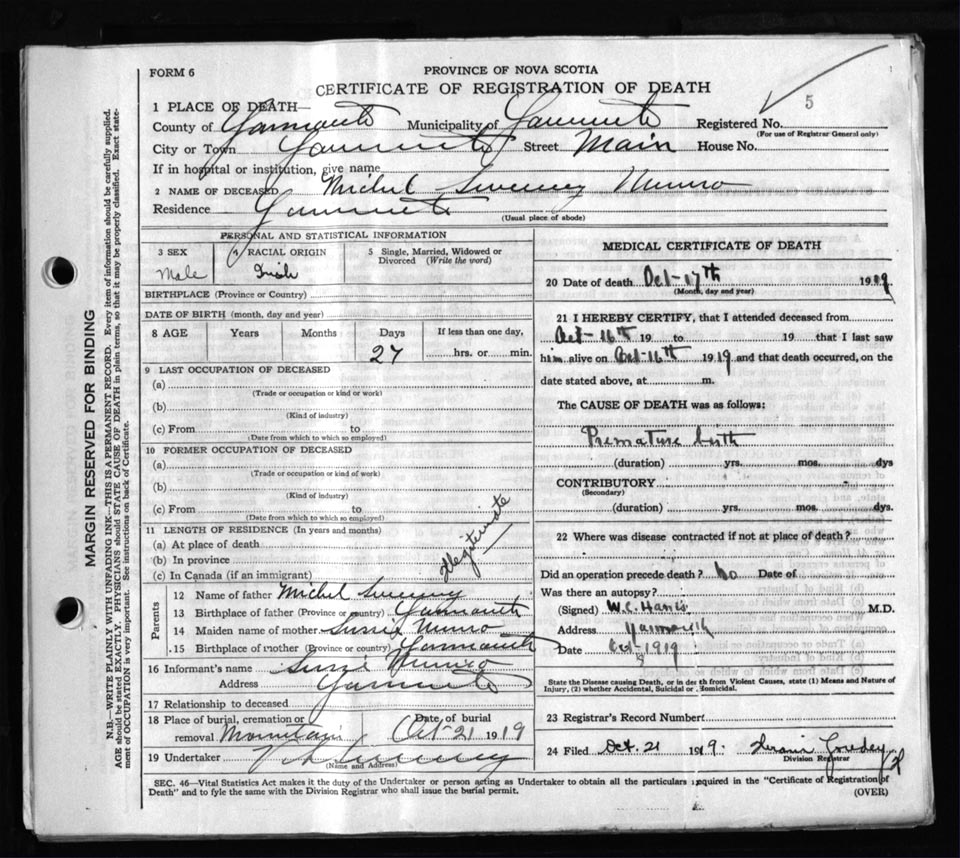 FORM 6
PROVINCE OF NOVA SCOTIA
CERTIFICATE OF REGISTRATION OF DEATH
5
1 PLACE OF DEATH—
County of Yarmouth Municipality of Yarmouth Registered No.
(For use of Registrar General only)
City or Town Yarmouth Street Main House No.
If in hospital or institution, give name
2 NAME OF DECEASED Michel Sweeney Munro
Residence Yarmouth
(Usual place of abode)
PERSONAL AND STATISTICAL INFORMATION
3 SEX 4 RACIAL ORIGIN 5 Single, Married, Widowed or
Divorced (Write the word)
Male Irish
BIRTHPLACE (Province or Country)
DATE OF BIRTH (month, day and year)
8 AGE Years Months Days If less than one day,
27 hrs. or min.
9 LAST OCCUPATION OF DECEASED
(a)
(Trade or occupation or kind or work)
(b)
(Kind of industry)
(c) From to
(Date from which to which so employed)
10 FORMER OCCUPATION OF DECEASED
(a)
(Trade or occupation or kind of work)
(b)
(Kind of industry)
(c) From to
(Date from which to which so employed)
11 LENGTH OF RESIDENCE (In years and months)
(a) At place of death
(b) In province
(c) In Canada (if an immigrant)
Illegitimate
Parents
12 Name of father Michel Sweeney
13 Birthplace of father (Province or country) Yarmouth
14 Maiden name of mother Sussie Munro
15 Birthplace of mother (Province or country) Yarmouth
16 Informant's name Sussie Munro
Address Yarmouth
17 Relationship to deceased
18 Place of burial, cremation or Date of burial
removal Mountain Oct-21 1919
19 Undertaker Sweeney
(Name and Address)
MEDICAL CERTIFICATE OF DEATH
20 Date of death Oct-17th 1919
(Month, day and year)
21 I HEREBY CERTIFY, that I attended deceased from
Oct-16th 19 to 19 that I last saw
him alive on Oct-16th 1919 and that death occurred, on the
date stated above, at m.
The CAUSE OF DEATH was as follows:
Premature birth
(duration) yrs. mos. dys
CONTRIBUTORY
(Secondary)
(duration) yrs. mos. dys.
22 Where was disease contracted if not at place of death?
Did an operation precede death? No Date of
Was there an autopsy?
(Signed) W.C. Harris M.D.
Address Yarmouth
Date Oct 1919
State the Disease causing Death, or in deaths from Violent Causes, state (1) Means and Nature of
Injury, (2) whether Accidental, Suicidal or Homicidal.
23 Registrar's Record Number
24 Filed Oct. 21 1919.
Division Registrar
SEC. 46—Vital Statistics Act makes it the duty of the Undertaker or person acting as Undertaker to obtain all the particulars required in the "Certificate of Registration of
Death" and to fyle the same with the Division Registrar who shall issue the burial permit.
(OVER)
MARGIN RESERVED FOR BINDING
N.B.—WRITE PLAINLY WITH UNFADING INK—THIS IS A PERMANENT RECORD. Every item of information should be carefully supplied.
AGE should be stated EXACTLY. PHYSICIANS should STATE CAUSE OF DEATH in plain terms, so that it may be properly classified. Exact state-
ment of OCCUPATION is very important. See instructions on back of Certificate.